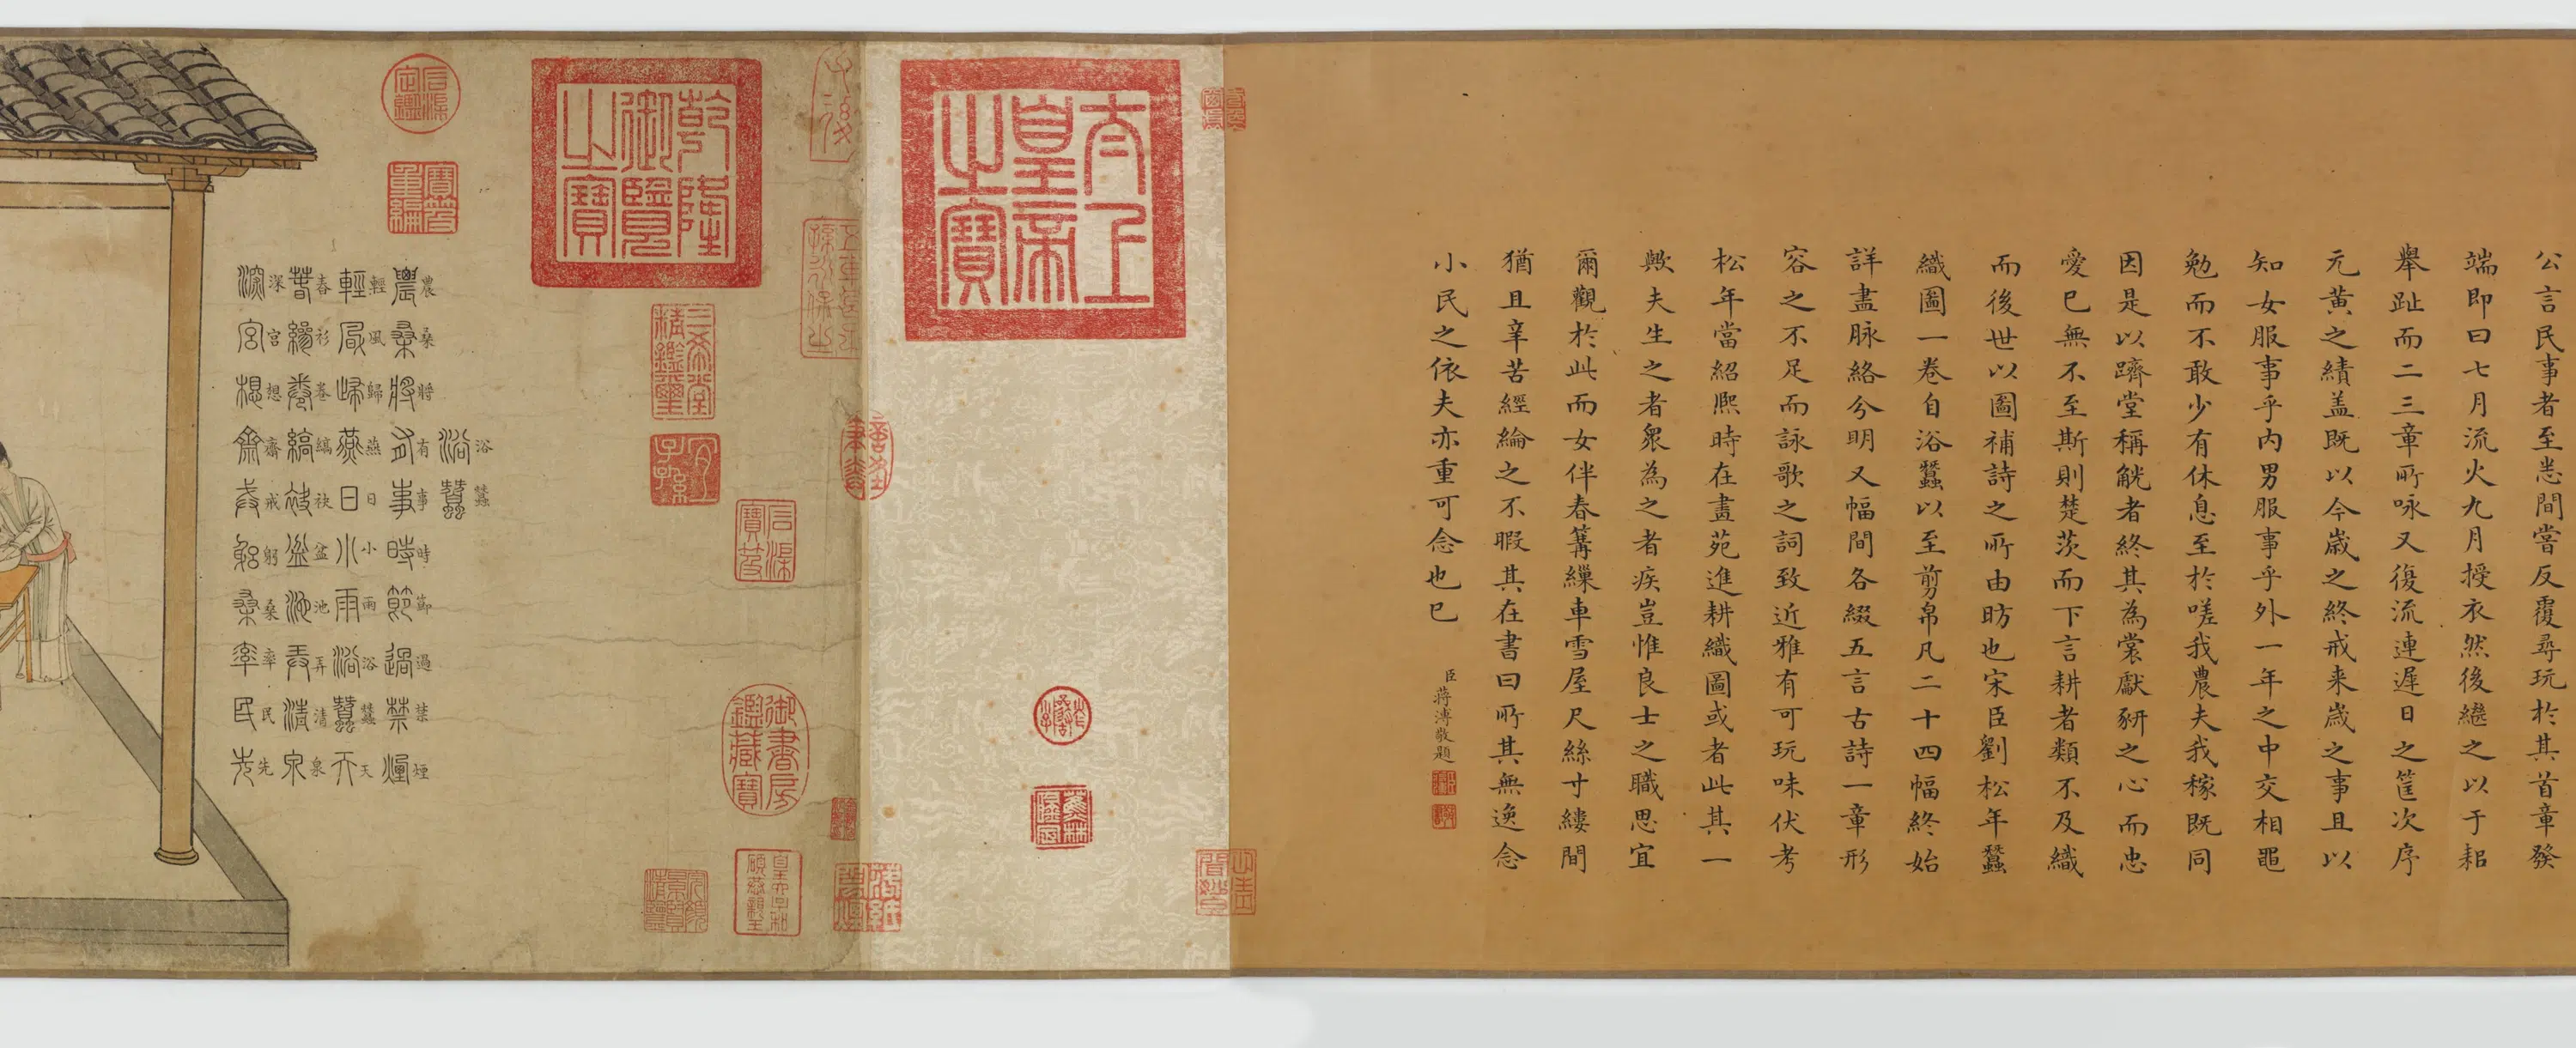 公言民事者至悉間嘗反覆尋玩於其首章發
端即曰七月流火九月授衣然後繼之以于耜
舉趾而二三章所咏又復流連遲日之筐次序
元黃之績盖既以今歲之終戒来歲之事且以
知女服事乎内男服事乎外一年之中交相黽
勉而不敢少有休息至於嗟我農夫我稼既同
因是以躋堂稱觥者終其為裳獻豜之心而忠
愛已無不至斯則楚茨而下言耕者類不及織
而後世以圖補詩之所由昉也宋臣劉松年蠶
織圖一卷自浴蠶以至剪帛凡二十四幅終始
詳盡脉絡分明又幅間各綴五言古詩一章形
容之不足而詠歌之詞致近雅有可玩味伏考
松年當紹熙時在畫苑進耕織圖或者此其一
歟夫生之者衆為之者疾豈惟良士之職思宜
爾觀於此而女伴春篝繅車雪屋尺絲寸縷間
猶且辛苦經綸之不暇其在書曰所其無逸念
小民之依夫亦重可念也已
臣蔣溥敬題
太上皇帝之寶
乾隆御覽之寶
三希堂精鑑璽
宜子孫
石渠寶笈
御書房鑑藏寶
石渠定鑑
寶笈重編
浴蠶
浴蠶
農桑將有事時節過禁煙
農桑將有事時節過禁煙
輕風歸燕日小雨浴蠶天
輕風歸燕日小雨浴蠶天
春衫卷縞袂盆池弄清泉
春衫卷縞袂盆池弄清泉
深宮想齋戒躬桑率民先
深宮想齋戒躬桑率民先